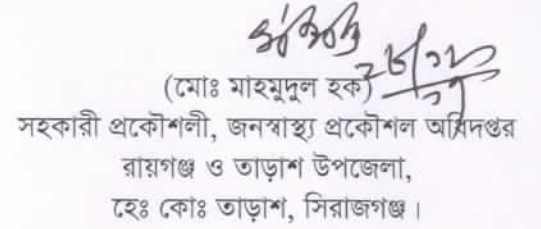 (মোঃ মাহমুদুল হক)
সহকারী প্রকৌশলী, জনস্বাস্থ্য প্রকৌশল অধিদপ্তর
রায়গঞ্জ ও তাড়াশ উপজেলা,
হেঃ কোঃ তাড়াশ, সিরাজগঞ্জ।